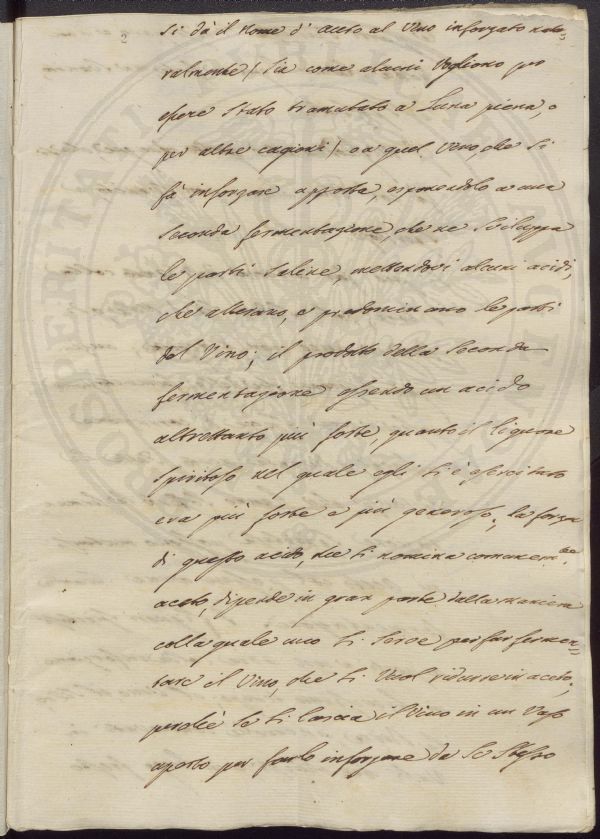 Si dà il nome d'aceto al Vino inforzato natu=
ralmente / sia come alcuni Vogliono per
essere stato tramutato a Luna piena, o
per altre cagioni / o a quel Vino, che si
fà inforzare apposta, esponendolo a una
seconda fermentazione, che ne sviluppa
le parti saline, mettendovi alcuni acidi,
che alterano, e predominano le parti
del Vino; il prodotto della seconda
fermentazione essendo un acido
altrettanto più forte, quanto il liquore
spiritoso nel quale egli si è esercitato
era più forte e più generoso; la forza
di questo acido, che si nomina comunem.te
aceto, dipende in gran parte dalla maniera
colla quale uno si serve per far fermen=
tare il Vino, che si Vuol ridurre in aceto;
perchè se si lascia il Vino in un Vaso
aperto per farlo inforzare da se stesso
PROSPERITATI